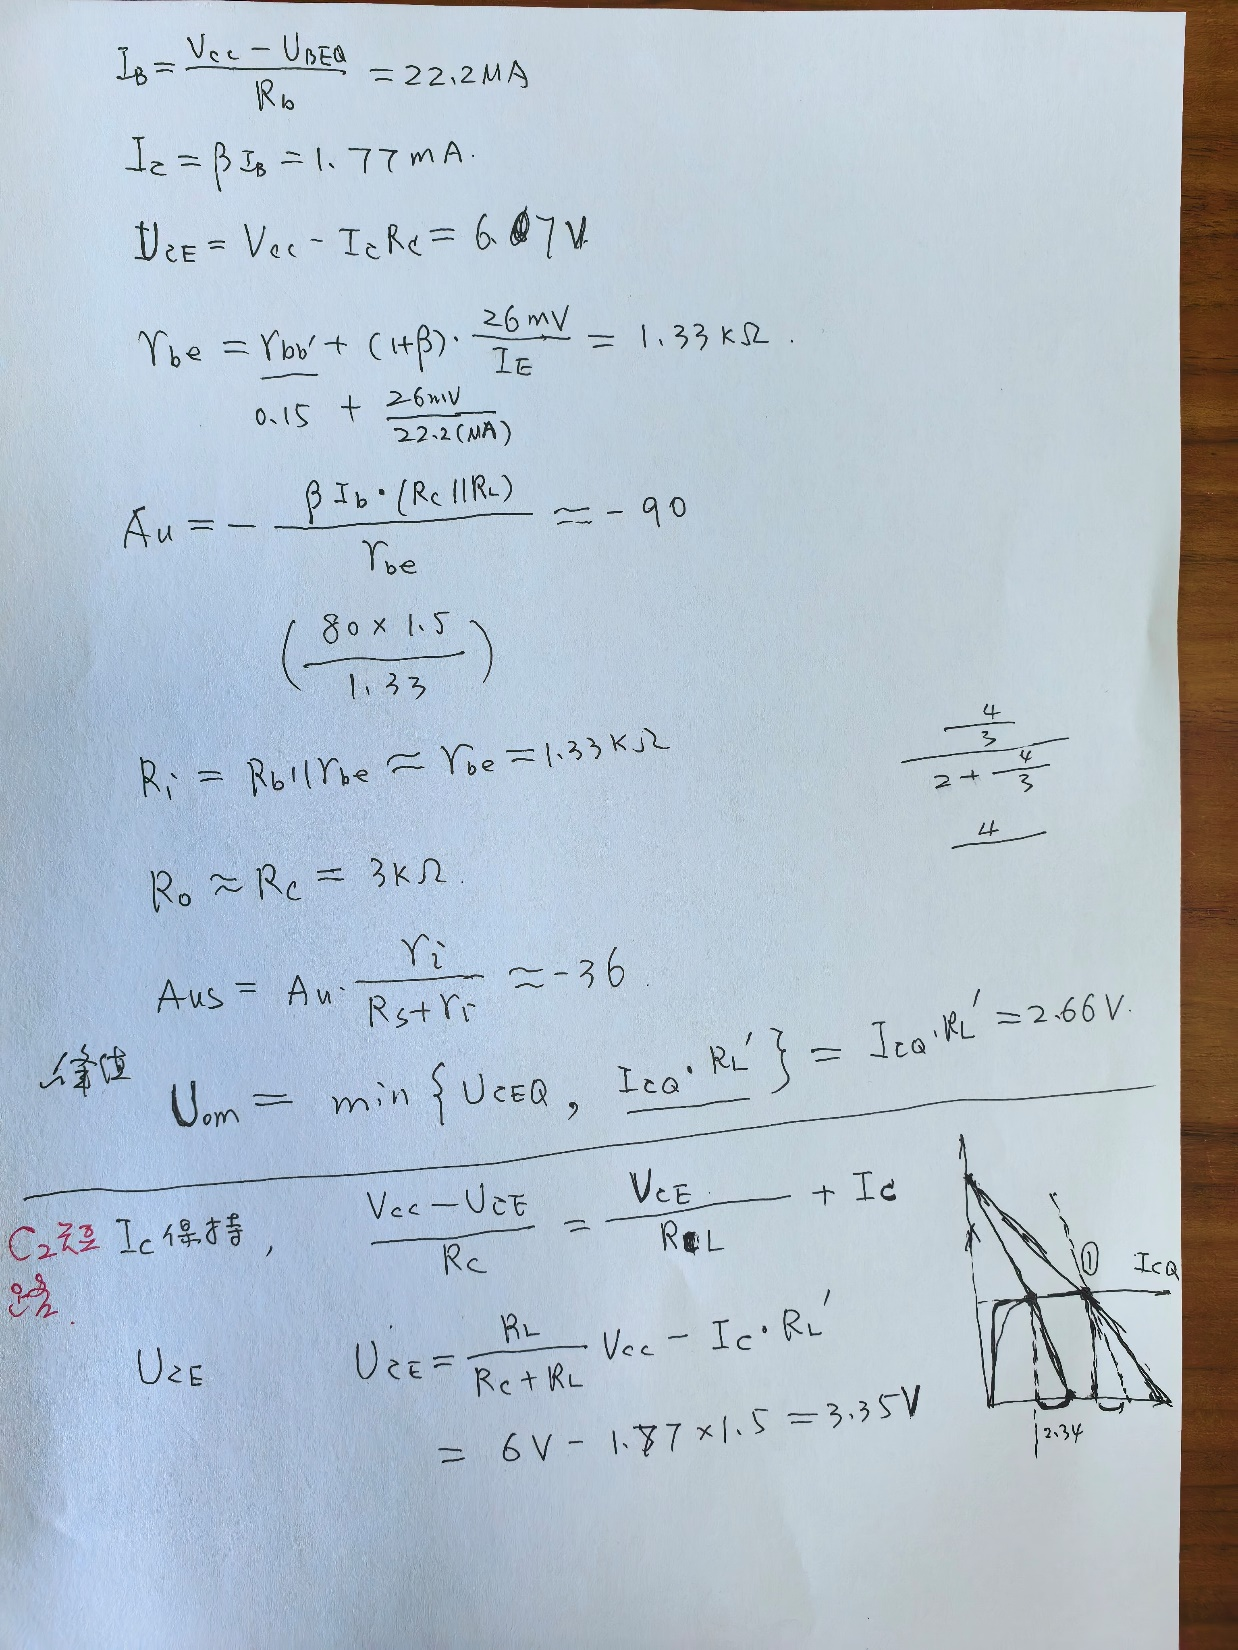 I_B = (V_CC - U_BEQ) / R_b = 22.2 MA
I_C = β I_B = 1.77 mA.
U_CE = V_CC - I_C R_C = 6.07V
r_be = r_bb' + (1+β)· 26mV / I_E = 1.33 kΩ.
0.15 + 26mV / 22.2(MA)
Au = - β I_b·(R_C || R_L) / r_be ≈ -90
(80 × 1.5 / 1.33)
R_i = R_b || r_be ≈ r_be = 1.33 kΩ
4/3 / 2 + 4/3
4
R_o ≈ R_C = 3KΩ.
Aus = Au· r_i / R_s + r_i ≈ -36.
峰值
U_om = min { U_CEQ , I_CQ · R_L' } = I_CQ · R_L' = 2.66 V.
C_2 I_C 保持,
(V_CC - U_CE) / R_C = V_CE / R_L + I_C
① I_CQ
U_CE U_CE = R_L / (R_C + R_L) V_CC - I_C · R_L'
= 6V - 1.77 × 1.5 = 3.35V
2.34